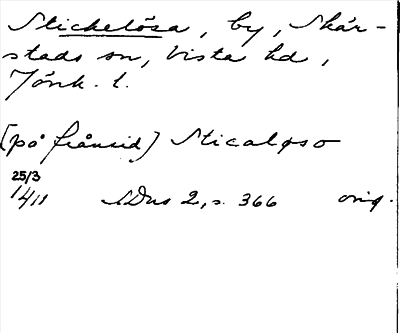 Stickelösa, by, Skär-
stads sn, Vista hd,
Jönk. l.
[på frånsid] Sticaløso
25/3
1411 SDns 2, s. 366 orig.